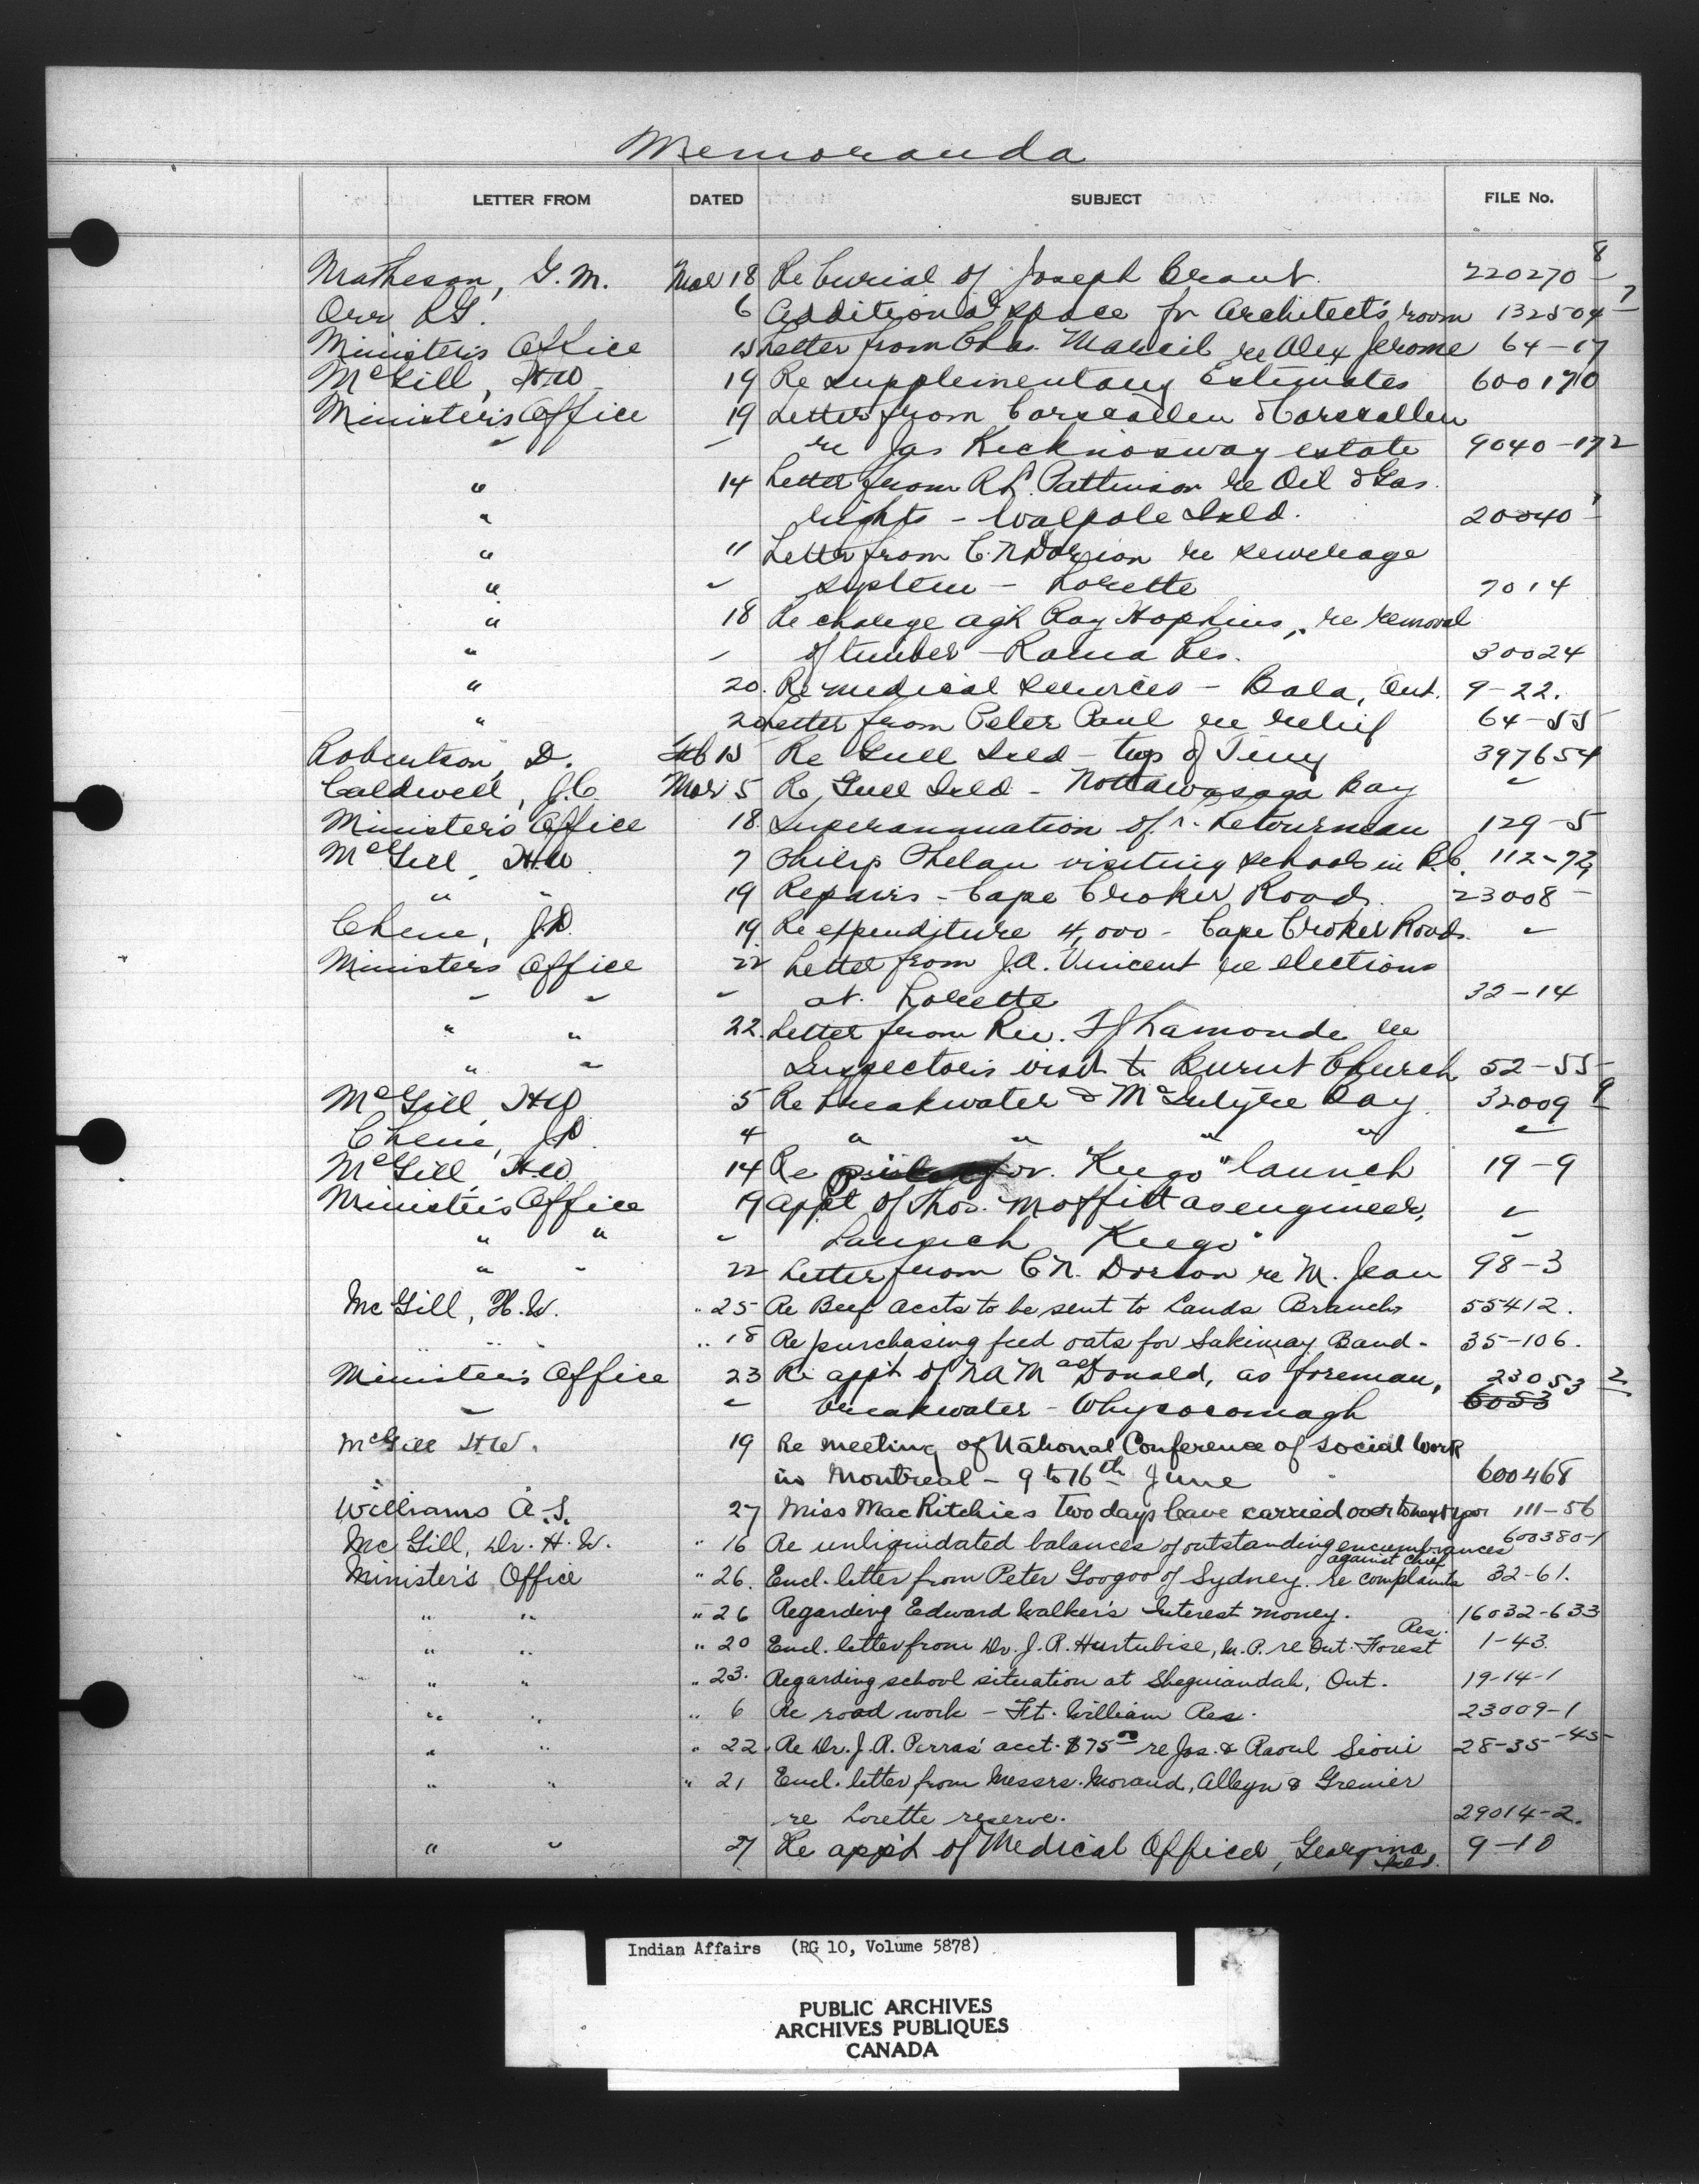 Memoranda
LETTER FROM DATED SUBJECT FILE No.
Matheson, G.M. Mar 18 Re burial of Joseph Brant 220270-8
Orr R.G. 6 Additional space for Architect's room 132504-7
Minister's Office 15 Letter from Chas. Marcil re Alex Jerome 64-17
McGill, H.W. 19 Re supplementary Estimates 600170
Minister's Office 19 Letter from Carscallen & Carscallen
" " re Jas Kicknosway estate 9040-172
" 14 Letter from R.L. Pattinson re Oil & Gas
" rights - Walpole Isld. 20040-1
" " Letter from C.N. Dorion re sewerage
" " system - Lorette 7014
" 18 Re charge agst Ray Hopkins, re removal
" " of timber - Rama Res. 30024
" 20. Re medical services - Bala, Ont. 9-22.
" 20 Letter from Peter Paul re relief 64-55
Robertson, D. Feb 15 Re Gull Isld - twp of Tiny 397654
Caldwell, J.C. Mar 5 Re Gull Isld - Nottawasaga Bay "
Minister's Office 18. Superannuation of Letourneau 129-5
McGill, H.W. 7 Philip Phelan visiting schools in B.C. 112-72
" " 19 Repairs - Cape Croker Road. 23008-
Chene, J.D. 19 Re expenditure 4,000 - Cape Croker Road. "
Ministers Office 22 Letter from J.A. Vincent re elections
" " " at Lorette 32-14
" " 22. Letter from Rev. Lamonde re
" " Inspector's visit to Burnt Church 52-55
McGill, H.W. 5 Re breakwater & McIntyre Bay. 32009-9
Chene, J.D. 4 " " " " "
McGill, H.W. 14 Re for "Keego" launch 19-9
Minister's Office 19 Appt of Thos. Moffitt as engineer, "
" " " Launch "Keego" "
" " 22 Letter from C.N. Dorion re M. Jean 98-3
McGill, H.W. " 25 Re Beef accts to be sent to Lands Branch 55412.
" " " " 18 Re purchasing feed oats for Sakimay Band - 35-106.
Minister's Office 23 Re appt of N A MacDonald, as foreman, 23053-2
" " breakwater - Whycocomagh 6053
McGill H.W. 19 Re meeting of National Conference of Social Work
in Montreal - 9 to 16th June 600468
Williams A.S. 27 Miss MacRitchie's two days leave carried over to next year 111-56
McGill, Dr. H.W. " 16 Re unliquidated balances of outstanding encumbrances 600380-1
Minister's Office " 26. Encl. letter from Peter Googoo of Sydney. re complaints against chief 32-61.
" " " 26 Regarding Edward Walker's Interest money. 16032-633
" " " 20 Encl. letter from Dr. J.R. Hurtubise, M.P. re Ont. Forest Res. 1-43
" " " 23. Regarding school situation at Sheguiandah, Ont. 19-14-1
" " " 6 Re road work - Ft. William Res. 23009-1
" " " 22. Re Dr. J.R. Perras' acct. $75 re Jos. & Raoul Sioui 28-35-45-
" " " 21 Encl. letter from Messrs. Morand, Alleyn & Grenier
re Lorette reserve. 29014-2.
" " 27 Re app't of Medical Officer, Georgina Isld. 9-10
Indian Affairs (RG 10, Volume 5878)
PUBLIC ARCHIVES
ARCHIVES PUBLIQUES
CANADA